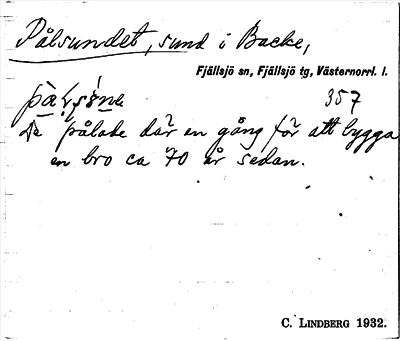 Pålsundet, sund i Backe,
Fjällsjö sn, Fjällsjö tg, Västernorrl. l.
357
De pålade där en gång för att bygga
en bro ca 70 år sedan.
C. LINDBERG 1932.